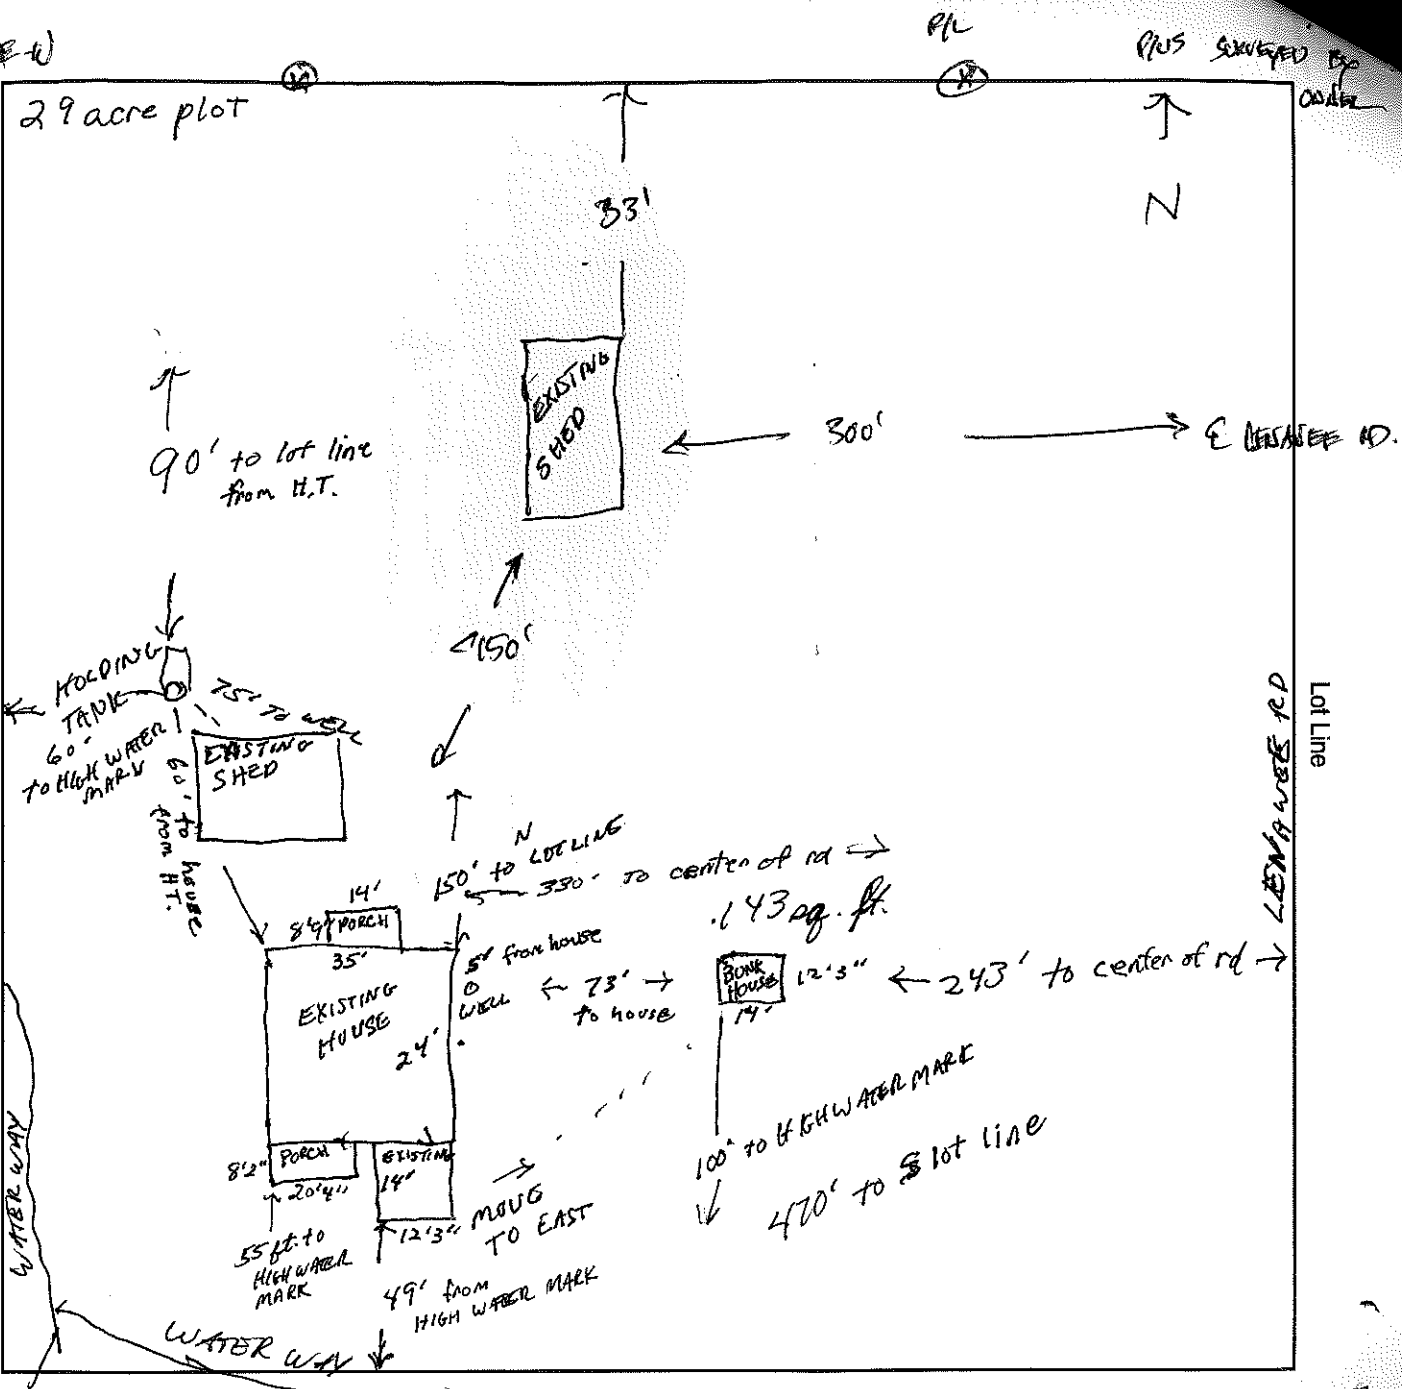 E-W
P/L
PINS SURVEYED BY
OWNER
29 acre plot
N
33'
EXISTING
SHED
300'
℄ LENAWEE RD.
90' to lot line
from H.T.
<150'
HOLDING
TANK
60'
TO HIGH WATER
MARK
75' TO WELL
60' to house
from H.T.
EXISTING
SHED
Lot Line
LENAWEE RD
150' to N
LOT LINE
330' TO center of rd
143 sq. ft.
14'
8'9"
PORCH
35'
EXISTING
HOUSE
24'
5' from house
WELL
73'
to house
BUNK
HOUSE
12'3"
14'
243' to center of rd
100' to HIGH WATER MARK
470' to S lot line
8'2"
PORCH
20'4"
EXISTING
14'
12'3"
MOVE
TO EAST
55 ft. to
HIGH WATER
MARK
49' from
HIGH WATER MARK
WATER WAY
WATER WAY